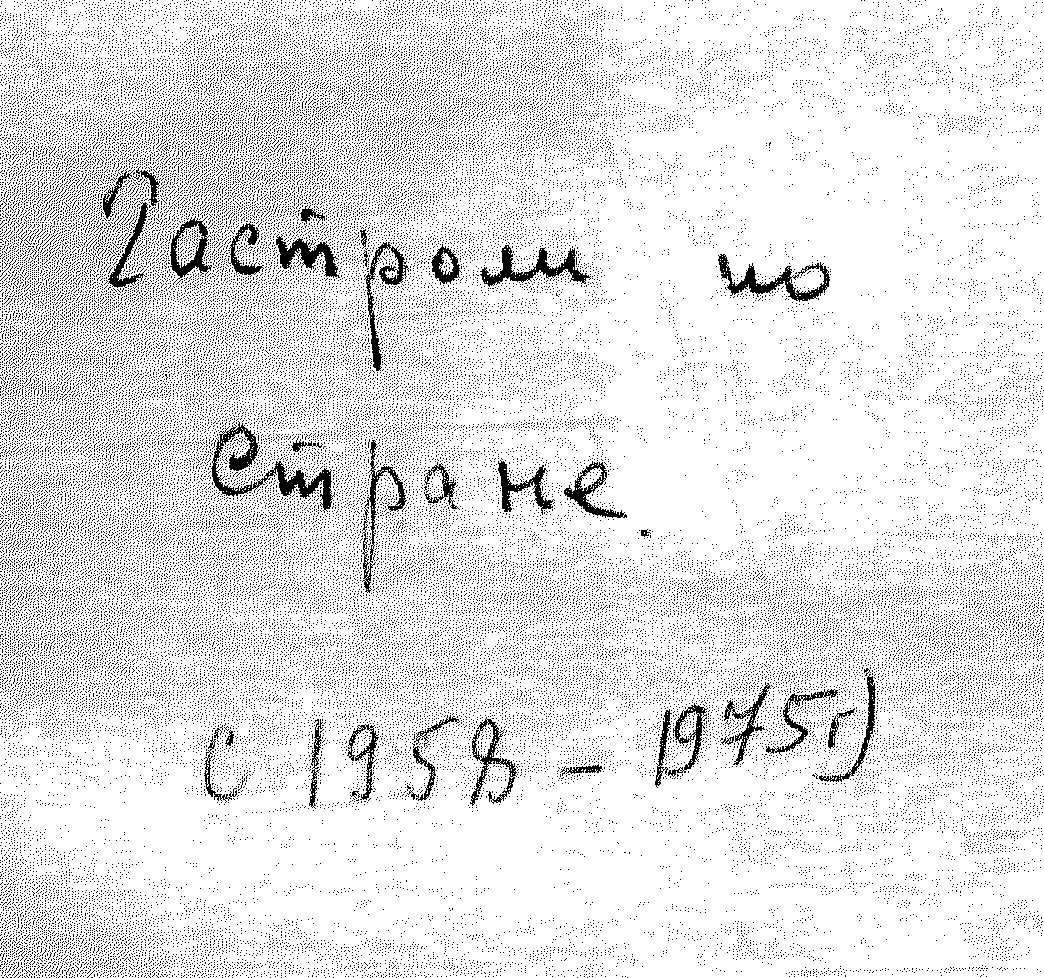 Гастроли по
стране.
С 1958 – 1975г)